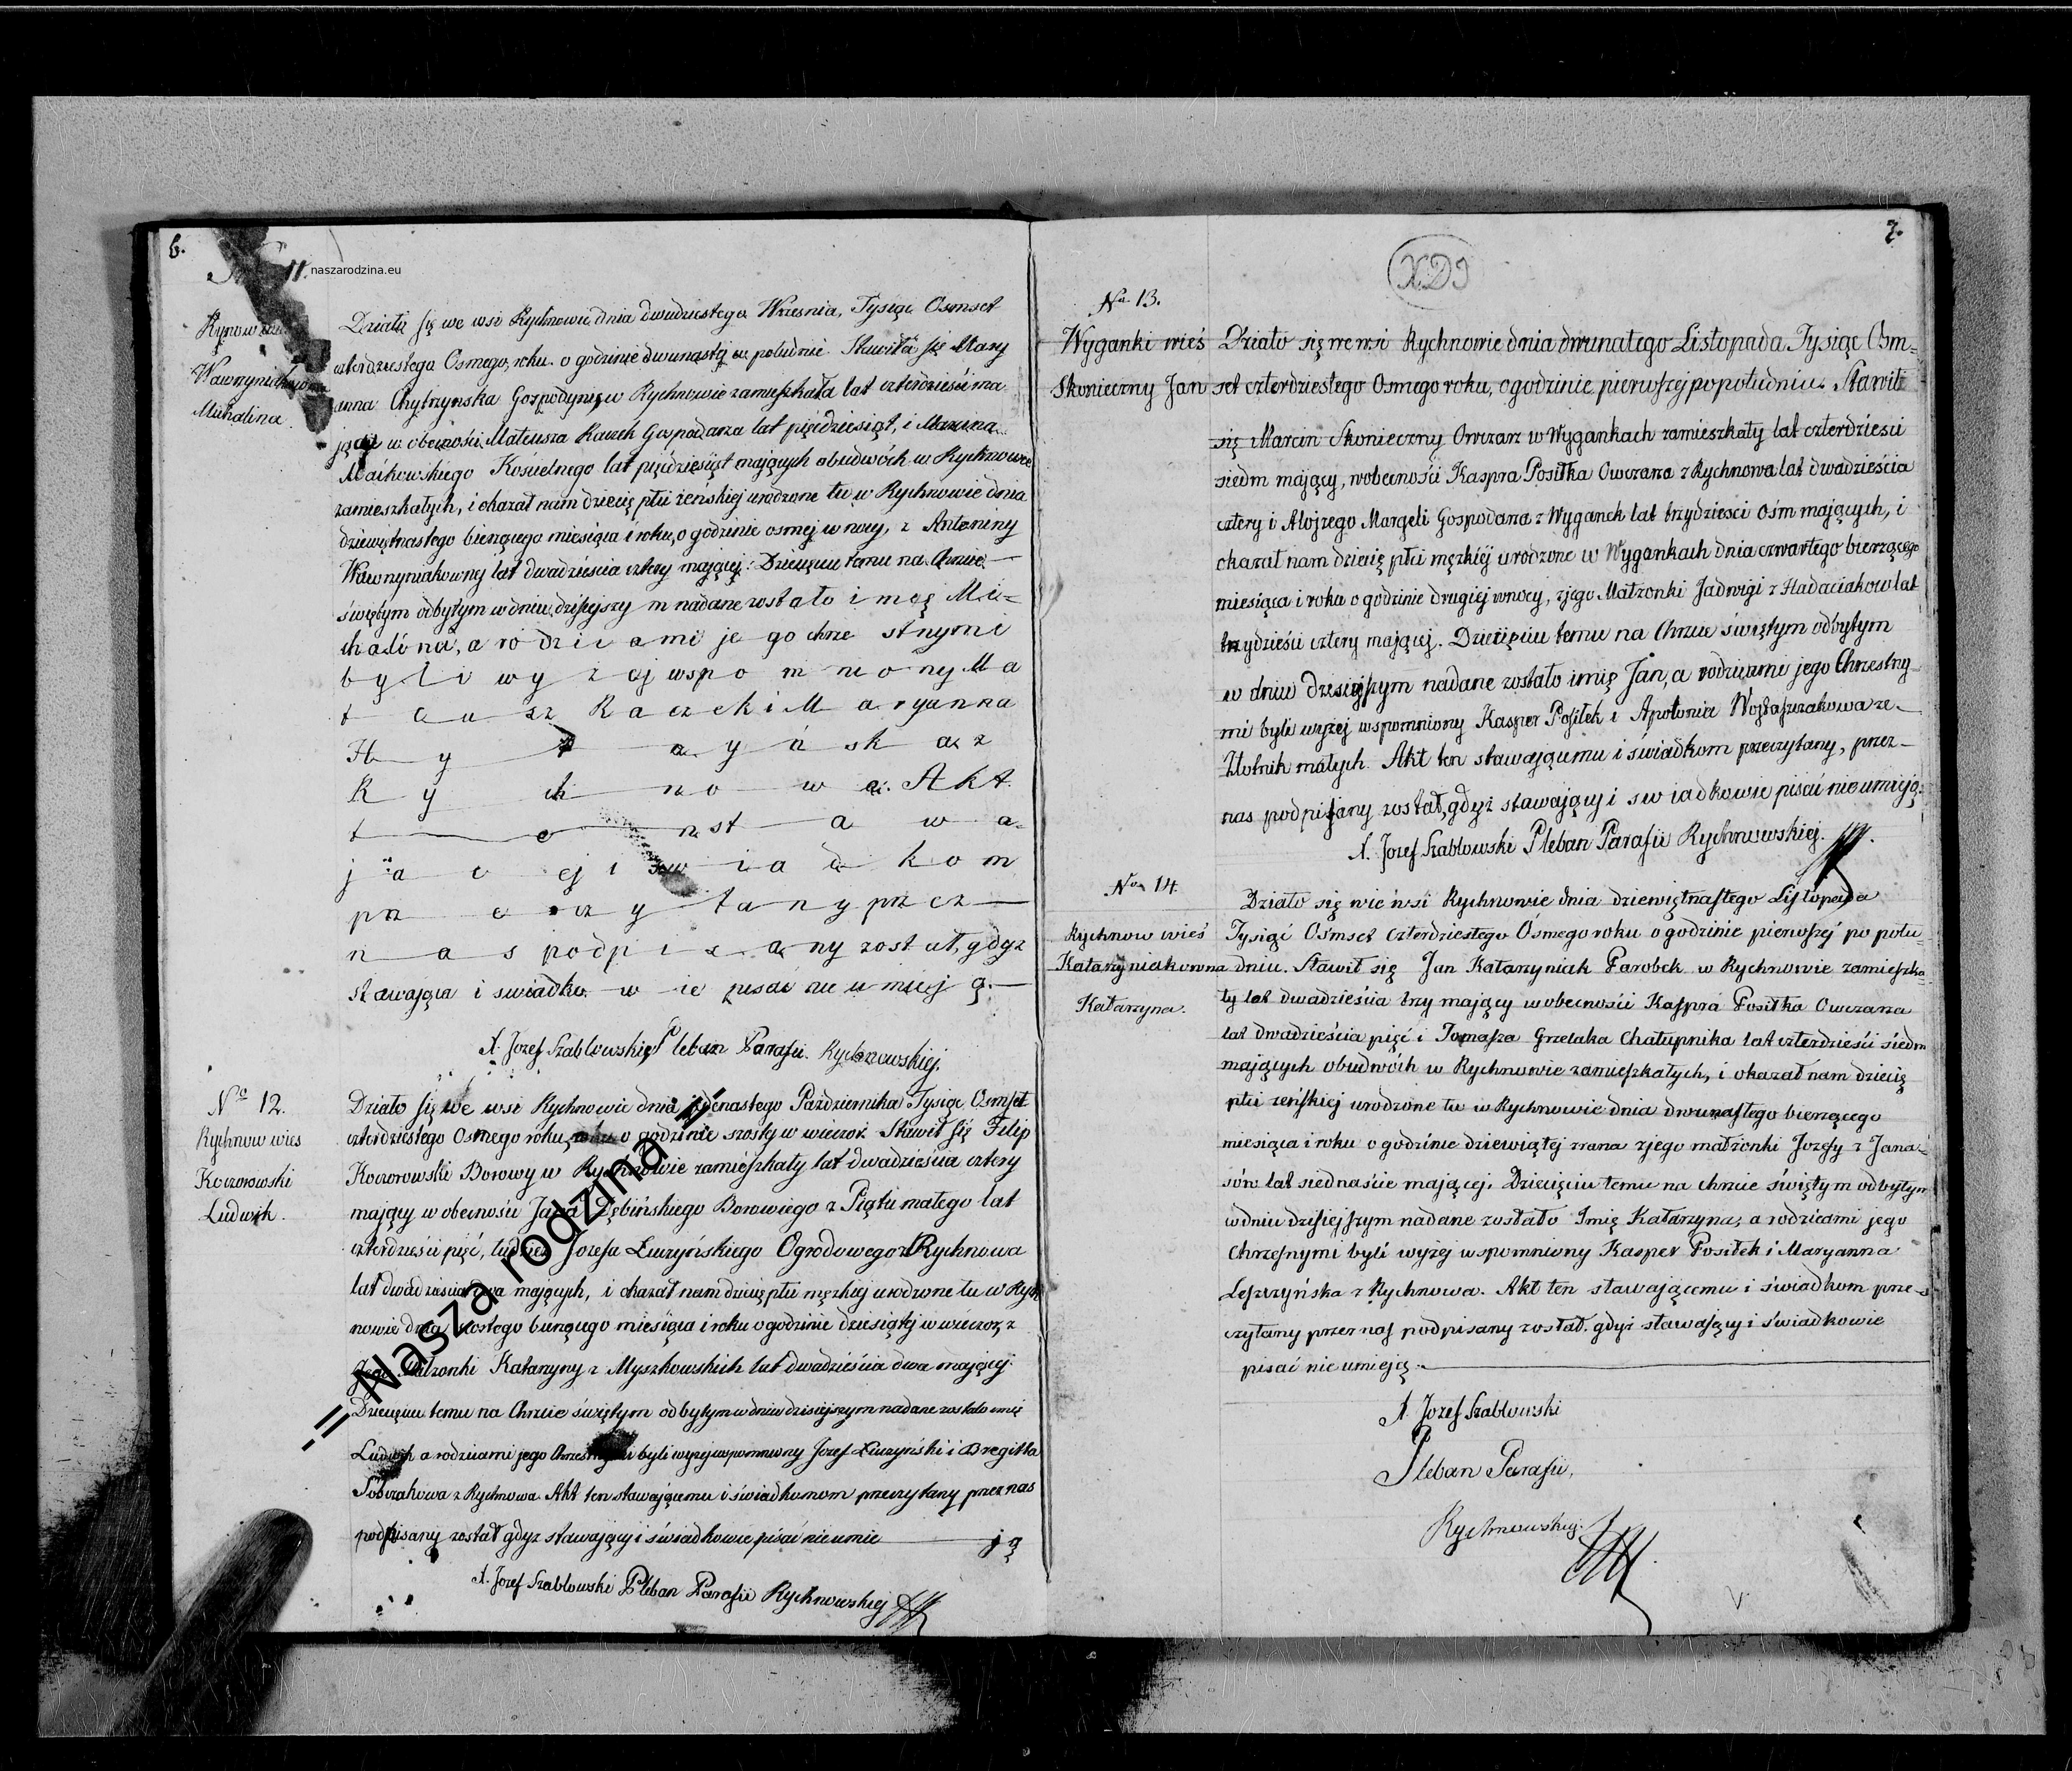 6.
11.
naszarodzina.eu
Michalina
Działo się we wsi Rychnowie dnia dwudziestego Wrzesnia, Tysiąc Osmset
czterdziestego Osmego, roku o godzinie dwunastej w południe. Stawiła się Mary
anna Chytrzynska Gospodyni w Rychnowie zamieszkała lat czterdzieści ma
jąca w obecności Mateusza Raczek Gospodarza lat pięćdziesiąt, i
Maikowskiego Kościelnego lat pięćdziesiąt mających obudwóch w Rychnowie
zamieszkałych, i okazał nam dziecię płci żeńskiej urodzone tu w Rychnowie dnia
dziewiętnastego bieżącego miesiąca i roku, o godzinie osmej w nocy, z Antoniny
Wawrzyniakownej lat dwadzieścia cztery mającej: Dziecięciu temu na Chrzcie
świętym odbytym w dniu dzisiejszym nadane zostało imię Mi-
chalina, a rodzicami jego chrzestnymi
byli wyżej wspomniony Ma
teusz Raczek i Maryanna
Rychnowa. Akt
ten stawa-
jącej i świadkom
przeczytany przez
nas podpisany został, gdyż
stawająca i swiadkowie pisać nie umieją.
X. Jozef Szablowski Pleban Parafii Rychnowskiej.
No 12.
Rychnow wies
Koczorowski
Ludwik.
Działo się we wsi Rychnowie dnia jedenastego Października Tysiąc Osmset
czterdziestego Osmego roku, o godzinie szostej w wieczor. Stawił się Filip
Koczorowski Borowy w Rychnowie zamieszkały lat dwadzieścia cztery
mający w obecności Jana Zębińskiego Borowiego z Piątku małego lat
czterdzieści pięć, tudzież Jozefa Łuczyńskiego Ogrodowego z Rychnowa
lat dwadzieścia dwa mających, i okazał nam dziecię płci męzkiej urodzone tu w Rych
nowie dnia szostego bieżącego miesiąca i roku o godzinie dziesiątej w wieczor, z
jego Małżonki Katarzyny z Myszkowskich lat dwadzieścia dwa mającej.
Dziecięciu temu na Chrzcie świętym odbytym w dniu dzisiejszym nadane zostało imię
Ludwik a rodzicami jego Chrzestnymi byli wyżej wspomniony Jozef Łuczyński i Bregitta
Sobczakowa z Rychnowa. Akt ten stawającemu i świadkom przeczytany przez nas
podpisany został gdyż stawający i świadkowie pisać nie umieją
X. Jozef Szablowski Pleban Parafii Rychnowskiej
-= Nasza rodzina =-
7.
No 13.
Wyganki wieś
Skonieczny Jan
Działo się we wsi Rychnowie dnia dwunatego Listopada Tysiąc Osm=
set czterdziestego Osmego roku, o godzinie pierwszej po południu. Stawił
się Marcin Skonieczny Owczarz w Wygankach zamieszkały lat czterdzieści
siedm mający, w obecności Kaspra Posiłka Owczarza z Rychnowa lat dwadzieścia
cztery i Alojzego Margeli Gospodarza z Wyganek lat trzydzieści ośm mających, i
okazał nam dziecię płci męzkiej urodzone w Wygankach dnia czwartego bierzącego
miesiąca i roku o godzinie drugiej w nocy, z jego Małżonki Jadwigi z Hadaciakow lat
trzydzieści cztery mającej. Dziecięciu temu na Chrzcie świętym odbytym
w dniu dzisiejszym nadane zostało imię Jan, a rodzicami jego Chrzestny-
mi byli wyżej wspomniony Kasper Posiłek i Apolonia Wojtaszczakowa ze
Złotnik małych. Akt ten stawającemu i świadkom przeczytany, przez
nas podpisany został, gdyż stawający i swiadkowie pisać nie umieją.
X. Jozef Szablowski Pleban Parafii Rychnowskiej.
No 14.
Rychnow wieś
Katarzyniakowna
Katarzyna.
Działo się we wsi Rychnowie dnia dziewiętnastego Listopada
Tysiąc Ośmset Czterdziestego Ósmego roku o godzinie pierwszej po połu-
dniu. Stawił się Jan Katarzyniak Parobek w Rychnowie zamieszka
ły lat dwadzieścia trzy mający w obecności Kaspra Posiłka Owczarza
lat dwadzieścia pięć i Tomasza Grzelaka Chałupnika lat czterdzieści siedm
mających obudwóch w Rychnowie zamieszkałych, i okazał nam dziecię
płci żeńskiej urodzone tu w Rychnowie dnia dwunastego bierzącego
miesiąca i roku o godzinie dziewiątej zrana z jego małżonki Jozefy z Jana-
sów lat siednaście mającej. Dziecięciu temu na chrzcie świętym odbytym
w dniu dzisiejszym nadane zostało Imię Katarzyna, a rodzicami jego
Chrzesnymi byli wyżej wspomniony Kasper Posiłek i Maryanna
Leszczyńska z Rychnowa. Akt ten stawającemu i świadkom prze-
czytany przez nas podpisany został. gdyż stawający i świadkowie
pisać nie umieją.
X. Jozef Szablowski
Pleban Parafii,
Rychnowskiej.